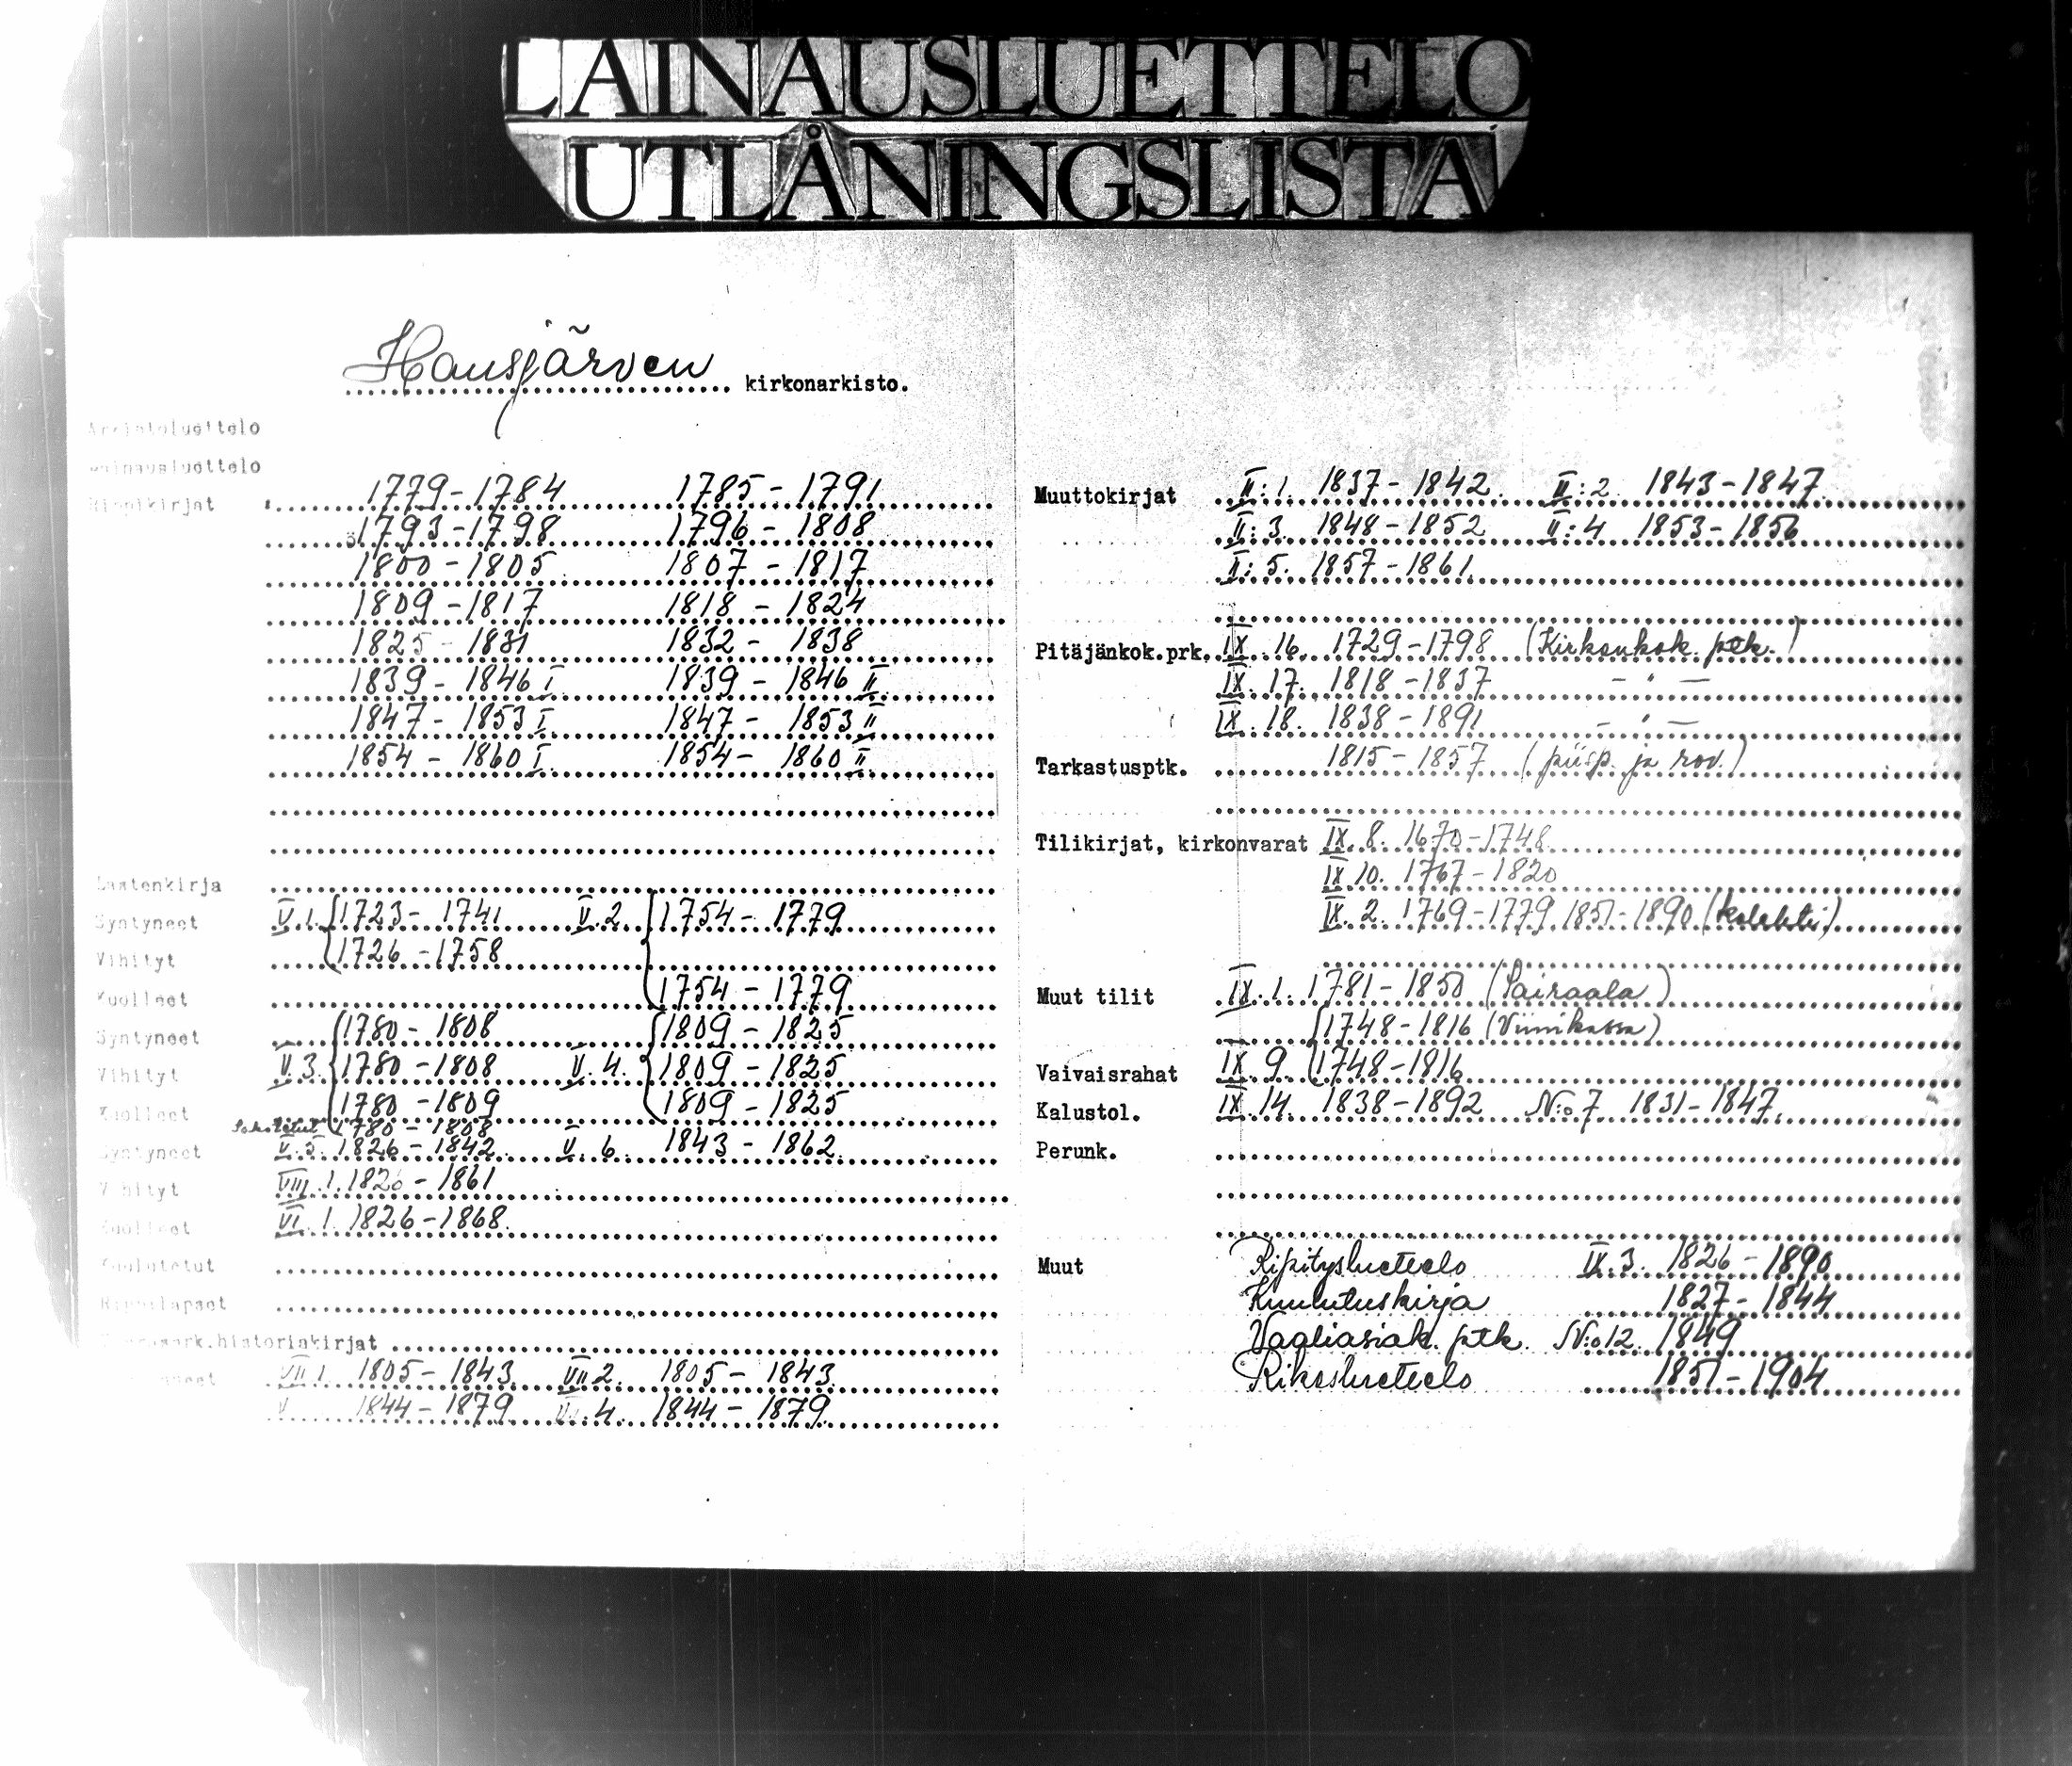 LAINAUSLUETTELO
UTLÅNINGSLISTA
Hausjärven kirkonarkisto.
Arkistoluettelo
Lainausluettelo
Rippikirjat 1779-1784 1785-1791
1793-1798 1796-1808
1800-1805 1807-1817
1809-1817 1818-1824
1825-1831 1832-1838
1839-1846 I 1839-1846 II
1847-1853 I 1847-1853 II
1854-1860 I 1854-1860 II
Lastenkirja
Syntyneet V.1. 1723-1741 V.2. 1754-1779
Vihityt 1726-1758
Kuolleet 1754-1779
Syntyneet 1780-1808 1809-1825
Vihityt V.3. 1780-1808 V.4. 1809-1825
Kuolleet 1780-1809 1809-1825
1780-1808
Syntyneet V.5. 1826-1842 V.6. 1843-1862
Vihityt VIII.1. 1826-1861
Kuolleet VI.1. 1826-1868.
Kuulutetut
Rippilapset
historiakirjat
VII 1. 1805-1843. VII 2. 1805-1843.
1844-1879 4. 1844-1879.
Muuttokirjat II:1. 1837-1842. II:2. 1843-1847.
II:3. 1848-1852 II:4 1853-1856
II:5. 1857-1861.
Pitäjänkok.prk. IX.16. 1729-1798 (Kirkonkok. ptk.)
IX.17. 1818-1837 -"-
IX.18. 1838-1891 -"-
Tarkastusptk. 1815-1857 (piisp. ja rov.)
Tilikirjat, kirkonvarat IX.8. 1670-1748.
IX.10. 1767-1820
IX.2. 1769-1779, 1851-1890 (kolehti)
Muut tilit IX.1. 1781-1850 (Sairaala)
1748-1816 (Viinikassa)
Vaivaisrahat IX.9. 1748-1816
Kalustol. IX.14. 1838-1892 N:o 7 1831-1847.
Perunk.
Muut Ripitysluettelo IX.3. 1826-1890
Kuulutuskirja 1827-1844
Vaaliasiak. ptk. N:o 12. 1849
Rikosluettelo 1851-1904